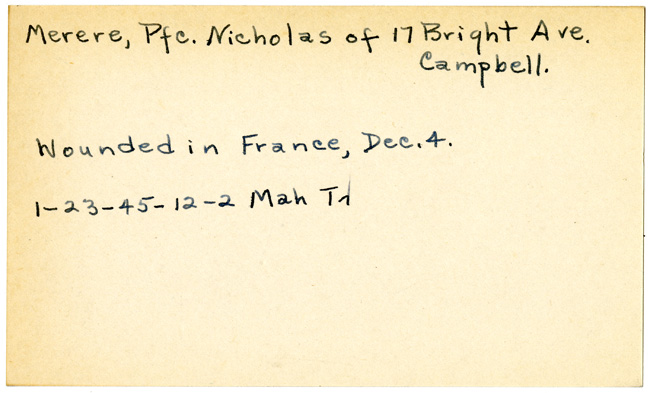 Merere, Pfc. Nicholas of 17 Bright Ave.
Campbell.
Wounded in France, Dec. 4.
1-23-45-12-2 Mah Tr